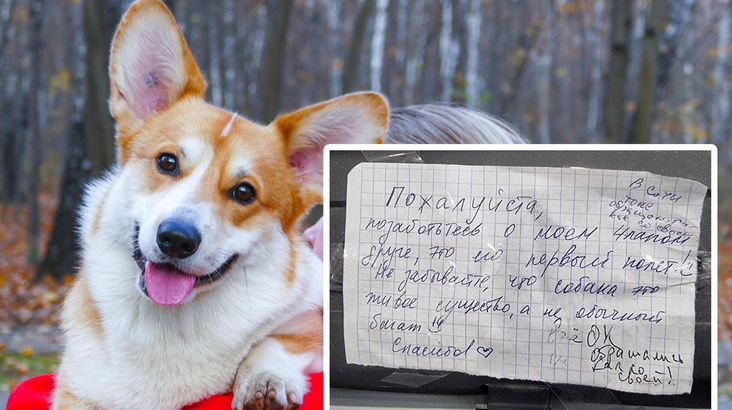 Пожалуйста,
позаботьтесь о моем 4лапом
друге, это его первый полет!
Не забывайте, что собака это
живое существо, а не обычный
багаж
Спасибо! ♡
В Сочи
тоже
обращались
как со своей
Всё ОК
обращались
как со
своей!